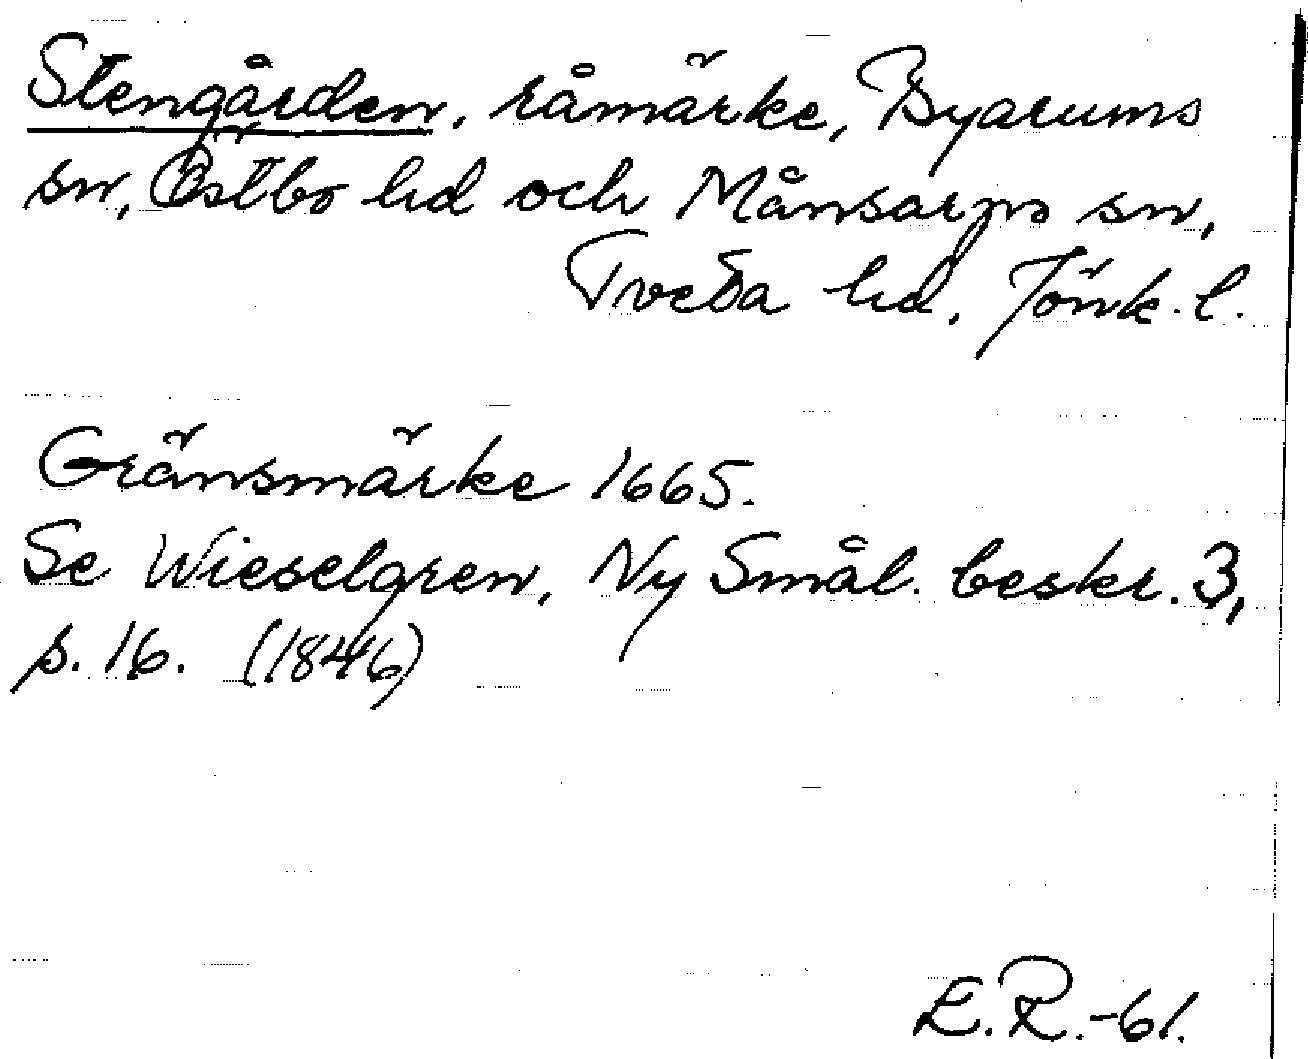 Stengården, råmärke, Byarums
sn, Östbo hd och Månsarps sn,
Tveta hd, Jönk. l.
Gränsmärke 1665.
Se Wieselgren, Ny Smål. beskr. 3,
s. 16. (1846)
E.R.-61.